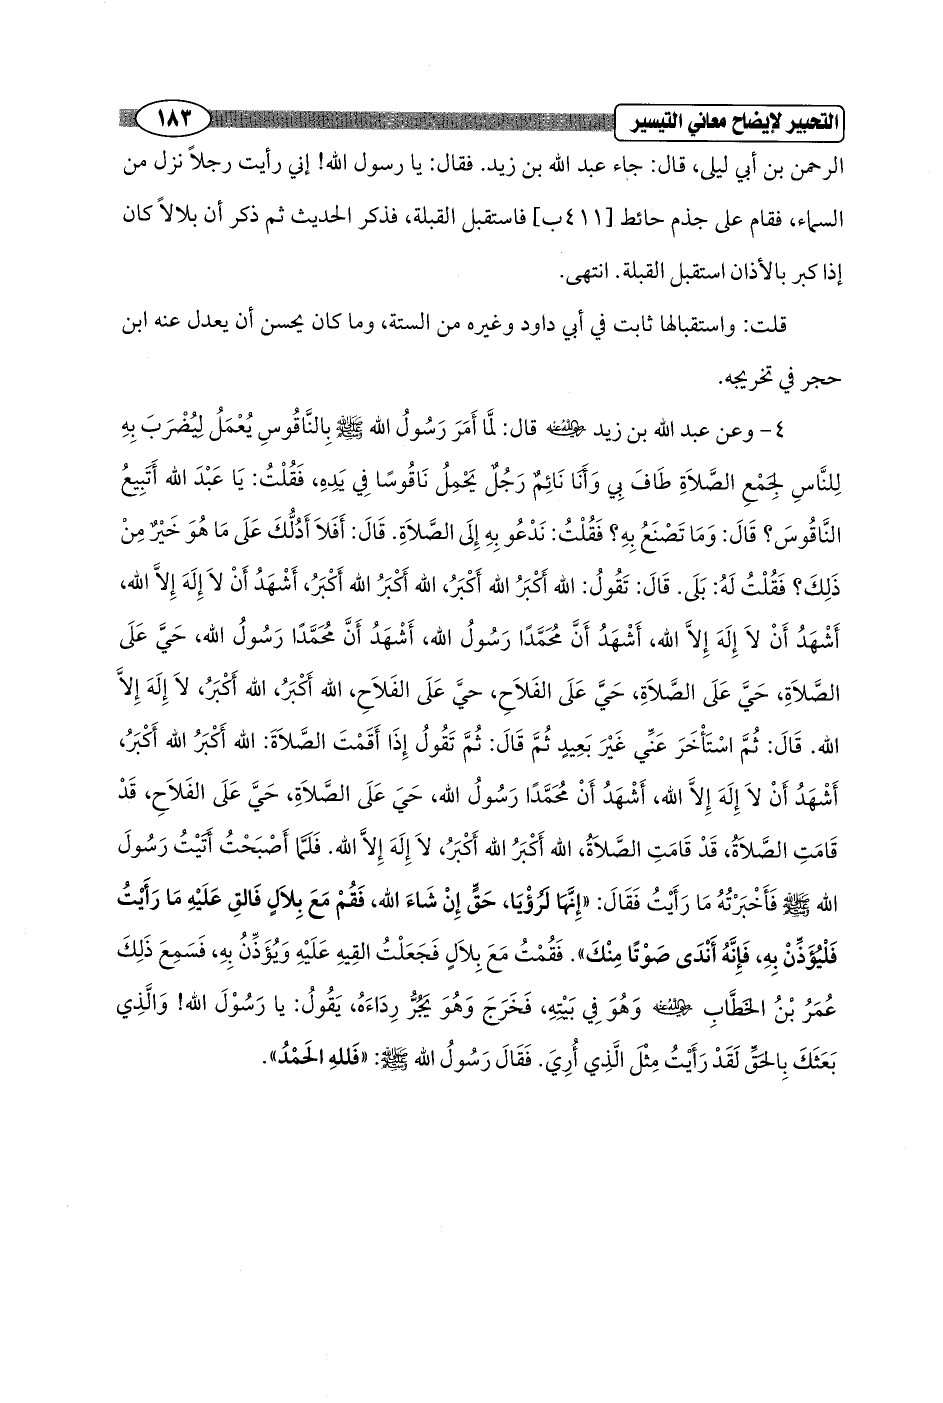 التحبير لإيضاح معاني التيسير ١٨٣
الرحمن بن أبي ليلى، قال: جاء عبد الله بن زيد. فقال: يا رسول الله! إني رأيت رجلاً نزل من
السماء، فقام على جذم حائط [٤١١ب] فاستقبل القبلة، فذكر الحديث ثم ذكر أن بلالاً كان
إذا كبر بالأذان استقبل القبلة. انتهى.
قلت: واستقبالها ثابت في أبي داود وغيره من الستة، وما كان يحسن أن يعدل عنه ابن
حجر في تخريجه.
٤- وعن عبد الله بن زيد رضي الله عنه قال: لَمَّا أَمَرَ رَسُولُ الله ﷺ بِالنَّاقُوسِ يُعْمَلُ لِيُضْرَبَ بِهِ
لِلنَّاسِ لِجَمْعِ الصَّلاَةِ طَافَ بِي وَأَنَا نَائِمٌ رَجُلٌ يَحْمِلُ نَاقُوسًا فِي يَدِهِ، فَقُلْتُ: يَا عَبْدَ الله أَتَبِيعُ
النَّاقُوسَ؟ قَالَ: وَمَا تَصْنَعُ بِهِ؟ فَقُلْتُ: نَدْعُو بِهِ إِلَى الصَّلاَةِ. قَالَ: أَفَلاَ أَدُلُّكَ عَلَى مَا هُوَ خَيْرٌ مِنْ
ذَلِكَ؟ فَقُلْتُ لَهُ: بَلَى. قَالَ: تَقُولُ: الله أَكْبَرُ الله أَكْبَرُ، الله أَكْبَرُ الله أَكْبَرُ، أَشْهَدُ أَنْ لاَ إِلَهَ إِلاَّ الله،
أَشْهَدُ أَنْ لاَ إِلَهَ إِلاَّ الله، أَشْهَدُ أَنَّ مُحَمَّدًا رَسُولُ الله، أَشْهَدُ أَنَّ مُحَمَّدًا رَسُولُ الله، حَيَّ عَلَى
الصَّلاَةِ، حَيَّ عَلَى الصَّلاَةِ، حَيَّ عَلَى الفَلاَحِ، حيَّ عَلَى الفَلاَحِ، الله أَكْبَرُ، الله أَكْبَرُ، لاَ إِلَهَ إِلاَّ
الله. قَالَ: ثُمَّ اسْتَأْخَرَ عَنِّي غَيْرَ بَعِيدٍ ثُمَّ قَالَ: ثُمَّ تَقُولُ إِذَا أَقَمْتَ الصَّلاَةَ: الله أَكْبَرُ الله أَكْبَرُ،
أَشْهَدُ أَنْ لاَ إِلَهَ إِلاَّ الله، أَشْهَدُ أَنْ مُحَمَّدًا رَسُولُ الله، حَيَ عَلَى الصَّلاَةِ، حَيَّ عَلَى الفَلاَحِ، قَدْ
قَامَتِ الصَّلاَةُ، قَدْ قَامَتِ الصَّلاَةُ، الله أَكْبَرُ الله أَكْبَرُ، لاَ إِلَهَ إِلاَّ الله. فَلَمَّا أَصْبَحْتُ أَتَيْتُ رَسُولَ
الله ﷺ فَأَخْبَرْتُهُ مَا رَأَيْتُ فَقَالَ: «إِنَّهَا لَرُؤْيَا، حَقٍّ إِنْ شَاءَ الله، فَقُمْ مَعَ بِلاَلٍ فَالقِ عَلَيْهِ مَا رَأَيْتُ
فَلْيُؤَذِّنْ بِهِ، فَإِنَّهُ أَنْدَى صَوْتًا مِنْكَ». فَقُمْتُ مَعَ بِلاَلٍ فَجَعَلْتُ القِيهِ عَلَيْهِ وَيُؤَذِّنُ بِهِ، فَسَمِعَ ذَلِكَ
عُمَرُ بْنُ الخَطَّابِ رضي الله عنه وَهُوَ فِي بَيْتِهِ، فَخَرَجَ وَهُوَ يَجُرُّ رِدَاءَهُ، يَقُولُ: يا رَسُوْلَ الله! وَالَّذِي
بَعَثَكَ بِالحَقِّ لَقَدْ رَأَيْتُ مِثْلَ الَّذِي أُرِيَ. فَقَالَ رَسُولُ الله ﷺ: «فَللهِ الحَمْدُ».